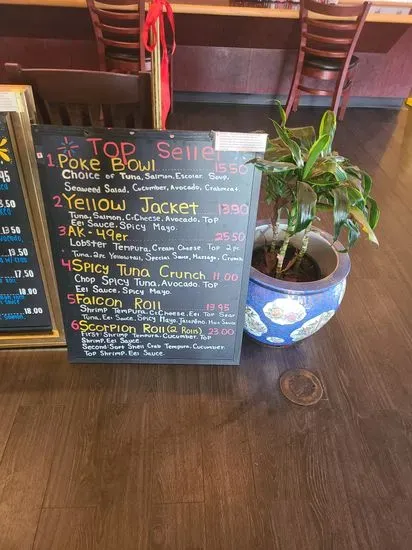 Top Seller
1 Poke Bowl 15.50
Choice of Tuna, Salmon, Escolar, Soup,
Seaweed Salad, Cucumber, Avocado, Crabmeat.
2 Yellow Jacket 13.90
Tuna, Salmon, C.Cheese, Avocado. Top
Eel Sauce, Spicy Mayo.
3 AK-49er 25.50
Lobster Tempura, Cream Cheese Top 2pc
Tuna, 2pc Yellowtail, Special Sauce, Masago, Crunch
4 Spicy Tuna Crunch 11.00
Chop Spicy Tuna, Avocado Top
Eel Sauce, Spicy Mayo.
5 Falcon Roll 13.95
Shrimp Tempura, C.Cheese, Eel Top Sear
Tuna, Eel Sauce, Spicy Mayo, Jalapeño, Hot Sauce
6 Scorpion Roll (2 Rolls) 23.00
First: Shrimp Tempura, Cucumber, Top
Shrimp, Eel Sauce.
Second: Soft Shell Crab Tempura, Cucumber
Top Shrimp, Eel Sauce.
13.50
17.50
18.00